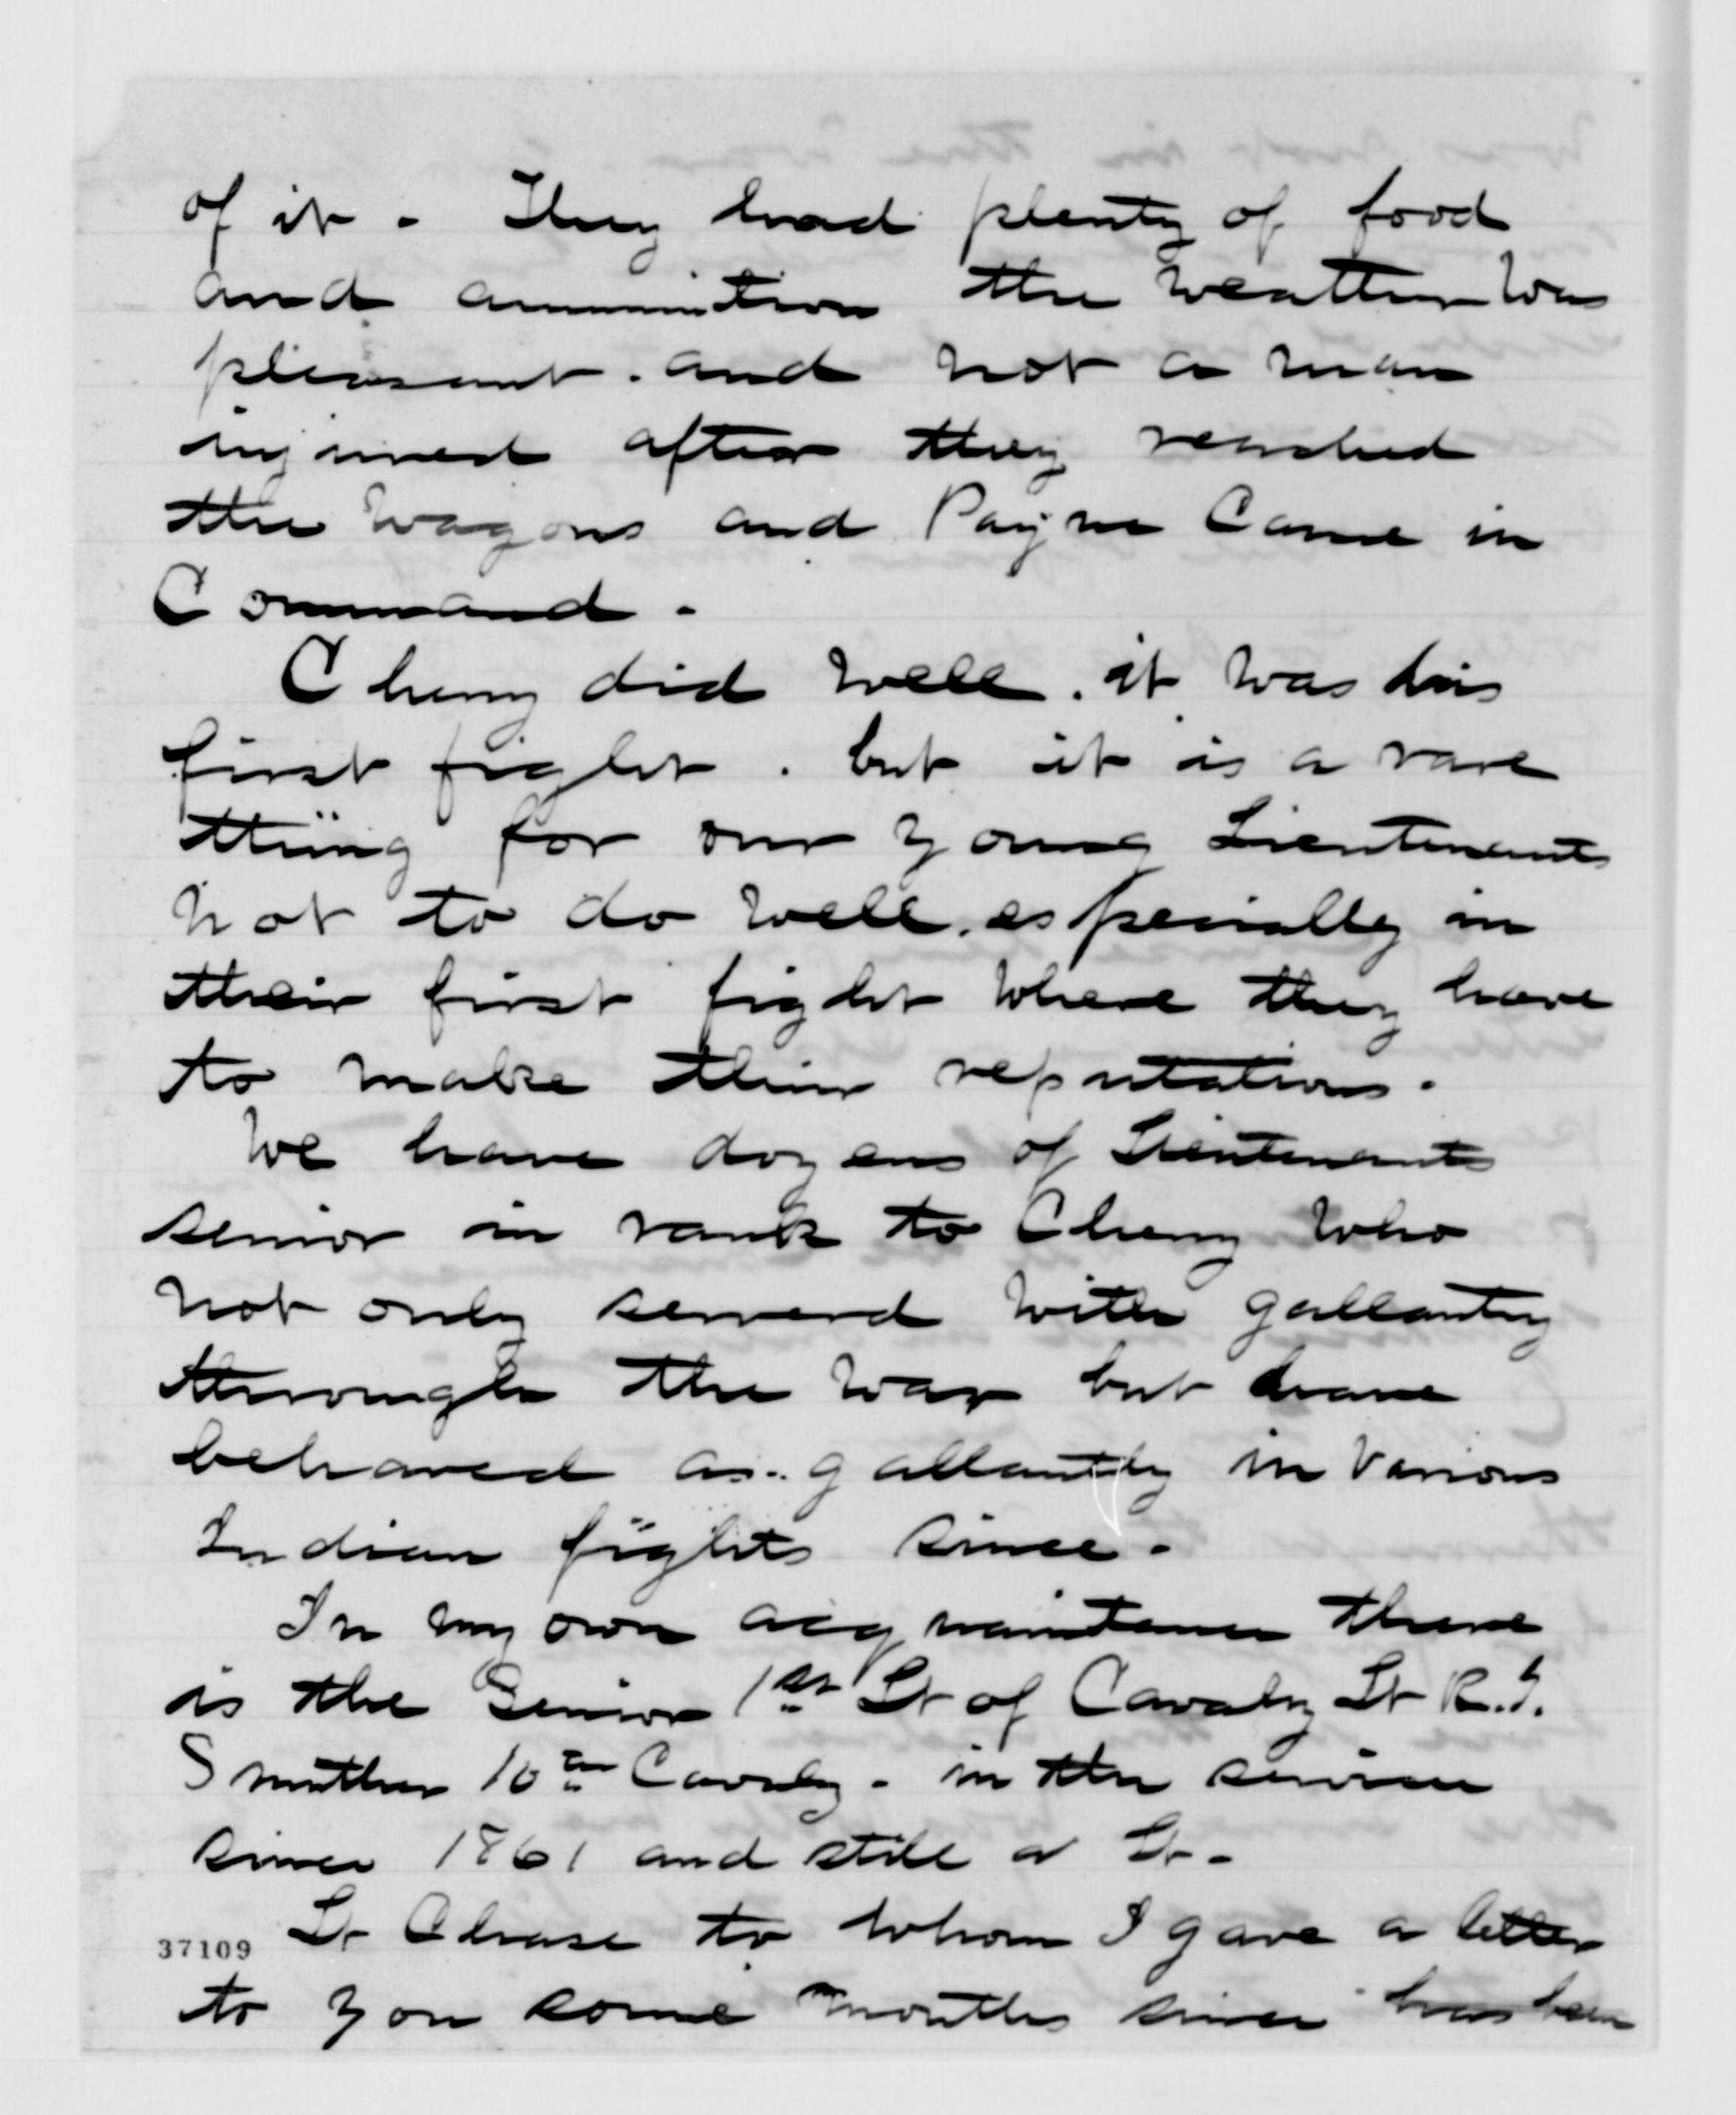 of it - They had plenty of food
and ammunition the weather was
pleasant. and not a man
injured after they reached
the wagons and Payne came in
Command.
Cherry did well. it was his
first fight. but it is a rare
thing for our young Lieutenants
not to do well. especially in
their first fight where they have
to make their reputations.
We have dozens of Lieutenants
senior in rank to Cherry who
not only served with gallantry
through the war but have
behaved as gallantly in various
Indian fights since.
In my own acquaintance there
is the Senior 1st Lt of Cavalry Lt R.G.
Smither 10th Cavalry - in the service
since 1861 and still a Lt.
Lt Chase to whom I gave a letter
37109
to you some months since has been